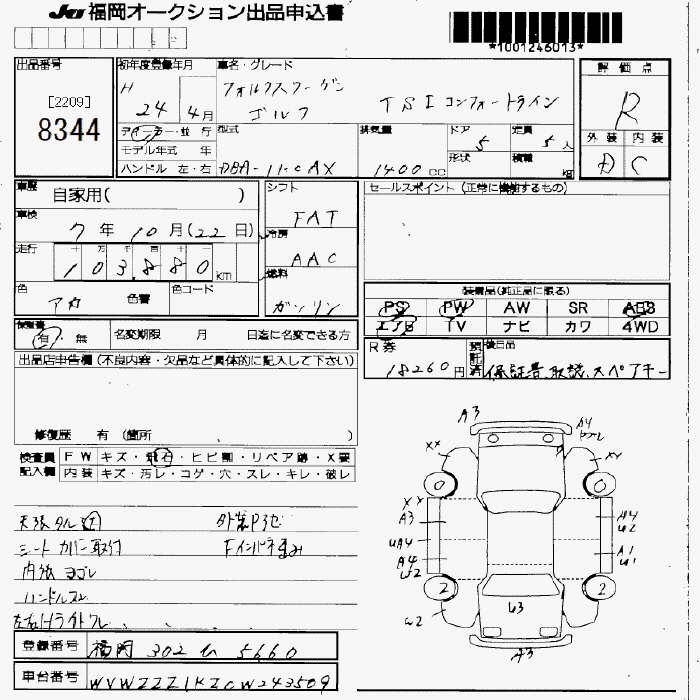 JU 福岡オークション出品申込書
*1001246013*
出品番号
[2209]
8344
初年度登録年月
H
24 4月
車名・グレード
フォルクスワーゲン
ゴルフ TSI コンフォートライン
ディーラー・並行
モデル年式 年
ハンドル 左・右
型式
排気量
1400 cc
ドア
5
形状
定員
5 人
積載
kg
評価点
R
外装 内装
D C
車歴
自家用( )
車検
7年10月(22日)
走行
十 万 千 百 十 一
103,880 km
色
アカ
色替
色コード
シフト
FAT
冷房
AAC
燃料
ガソリン
セールスポイント (正常に機能するもの)
装備品(純正品に限る)
PS PW AW SR ABS
エアB TV ナビ カワ 4WD
検査書
有・無
名変期限 月 日迄に名変できる方
R券
18260円
預託済
後日品
保証書, 取説, スペアキー
出品店申告欄 (不良内容・欠品など具体的に記入して下さい)
修復歴 有 (箇所 )
検査員記入欄
FW キズ・飛石・ヒビ割・リペア跡・X要
内装 キズ・汚レ・コゲ・穴・スレ・キレ・破レ
天張タルミ
シートカバー取付
内張ヨゴレ
ハンドルスレ
左右Hライトクレ
A3
A4
XX
XX
A3
UA4
A4
U2
W2
A4
U2
A1
U1
0
0
2
2
U3
A3
登録番号
福岡 302 ム 5660
車台番号
WVWZZZ1KZCW243509